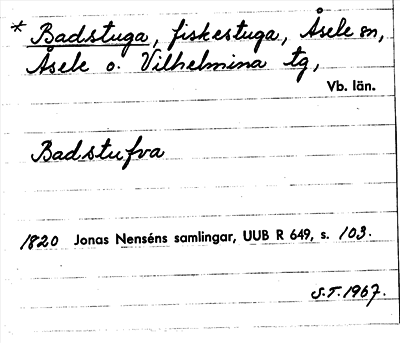 * Badstuga, fiskestuga, Åsele sn,
Åsele o. Vilhelmina tg,
Vb. län.
Badstufva
1820 Jonas Nenséns samlingar, UUB R 649, s. 103.
S.T. 1967.